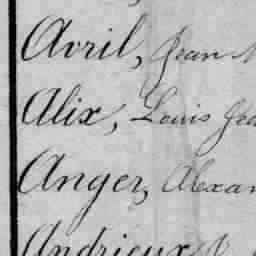 Avril, Jean
Alix, Louis
Anger, Alexan
Andrieux